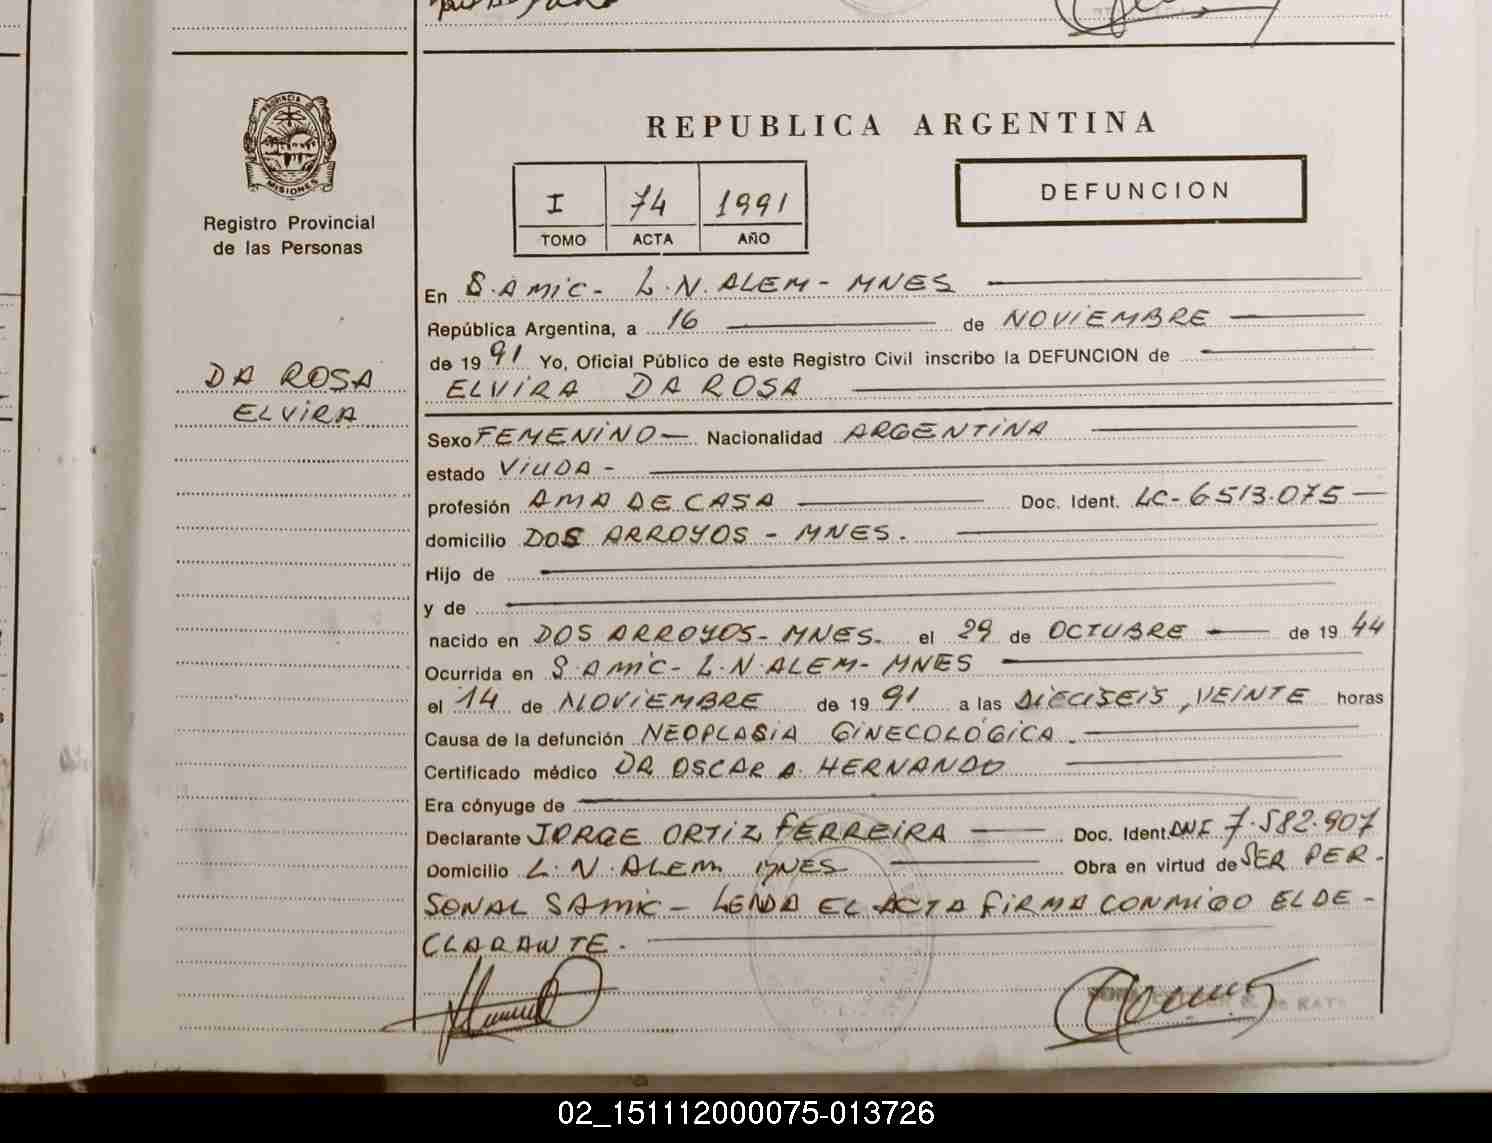 REPUBLICA ARGENTINA
PROVINCIA DE
MISIONES
Registro Provincial
de las Personas
I 74 1991
TOMO ACTA AÑO
DEFUNCION
DA ROSA
ELVIRA
En S.AMIC- L.N.ALEM- MNES
República Argentina, a 16 de NOVIEMBRE
de 1991 Yo, Oficial Público de este Registro Civil inscribo la DEFUNCION de
ELVIRA DA ROSA
Sexo FEMENINO- Nacionalidad ARGENTINA
estado VIUDA-
profesión AMA DE CASA Doc. Ident. LC-6513.075
domicilio DOS ARROYOS - MNES.
Hijo de
y de
nacido en DOS ARROYOS- MNES. el 29 de OCTUBRE de 1944
Ocurrida en S.AMIC- L.N.ALEM- MNES
el 14 de NOVIEMBRE de 1991 a las DIECISEIS, VEINTE horas
Causa de la defunción NEOPLASIA GINECOLÓGICA.
Certificado médico DR OSCAR A. HERNANDO
Era cónyuge de
Declarante JORGE ORTIZ FERREIRA Doc. Ident. DNI 7.582.907
Domicilio L.N.ALEM MNES Obra en virtud de SER PER-
SONAL SAMIC- LEIDA EL ACTA FIRMA CONMIGO EL DE-
CLARANTE.
02_151112000075-013726